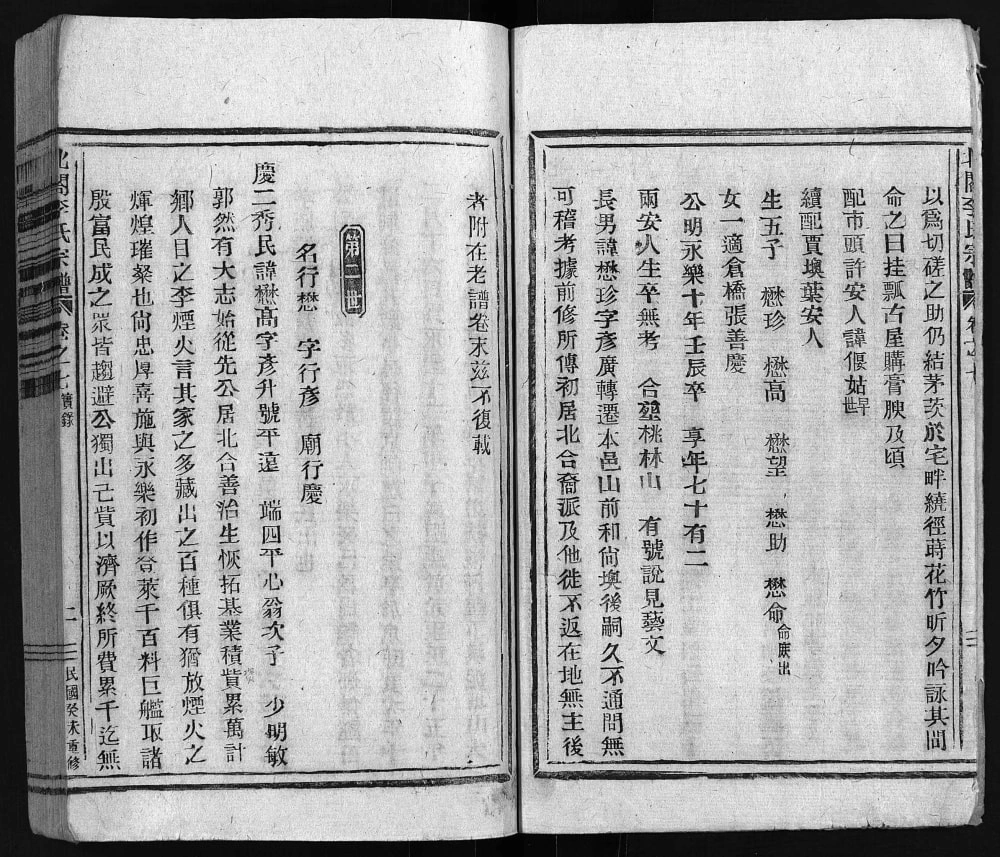 以爲切磋之助仍結茅茨於宅畔繞徑蒔花竹昕夕吟詠其間
命之曰挂瓢古屋購膏腴及頃
配市頭許安人諱偃姑早世
續配賈墺葉安人
生五子 懋珍 懋高 懋望 懋助 懋命命庶出
女一適倉橋張善慶
公明永樂十年壬辰卒 享年七十有二
兩安人生卒無考 合塟桃林山 有號說見藝文
長男諱懋珍字彥廣轉遷本邑山前和尙墺後嗣久不通問無
可稽考據前修所傳初居北合裔派及他徙不返在地無主後
者附在老譜卷末茲不復載
第二世
名行懋 字行彥 廟行慶
慶二秀民諱懋高字彥升號平遠 端四平心翁次子 少明敏
郭然有大志始從先公居北合善治生恢拓基業積貲累萬計
鄉人目之李煙火言其家之多藏出之百種俱有猶放煙火之
煇煌璀粲也尙忠厚喜施與永樂初作登萊千百料巨艦取諸
殷富民成之眾皆趨避公獨出己貲以濟厥終所費累千迄無
北閣李氏宗譜 卷之七 實錄 二 民國癸未重修